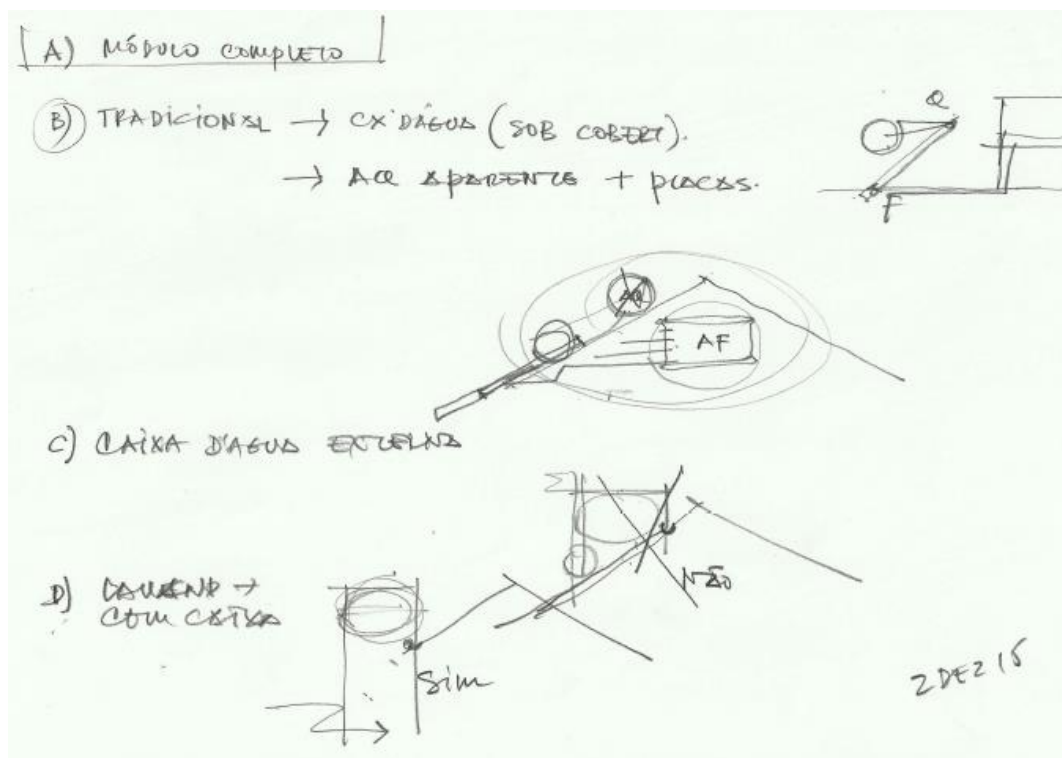 A) MÓDULO COMPLETO
B) TRADICIONAL → CX'DÁGUA (SOB COBERT).
→ AQ APARENTE + PLACAS.
Q
F
AQ
AF
C) CAIXA D'AGUA EXTERNA
NÃO
D) →
COM CAIXA
Sim
2 DEZ 15